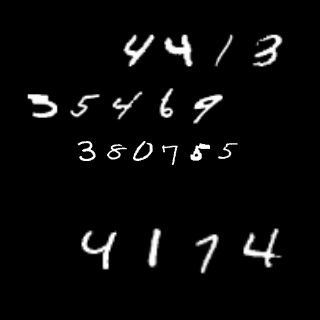 4413
35469
380755
4174